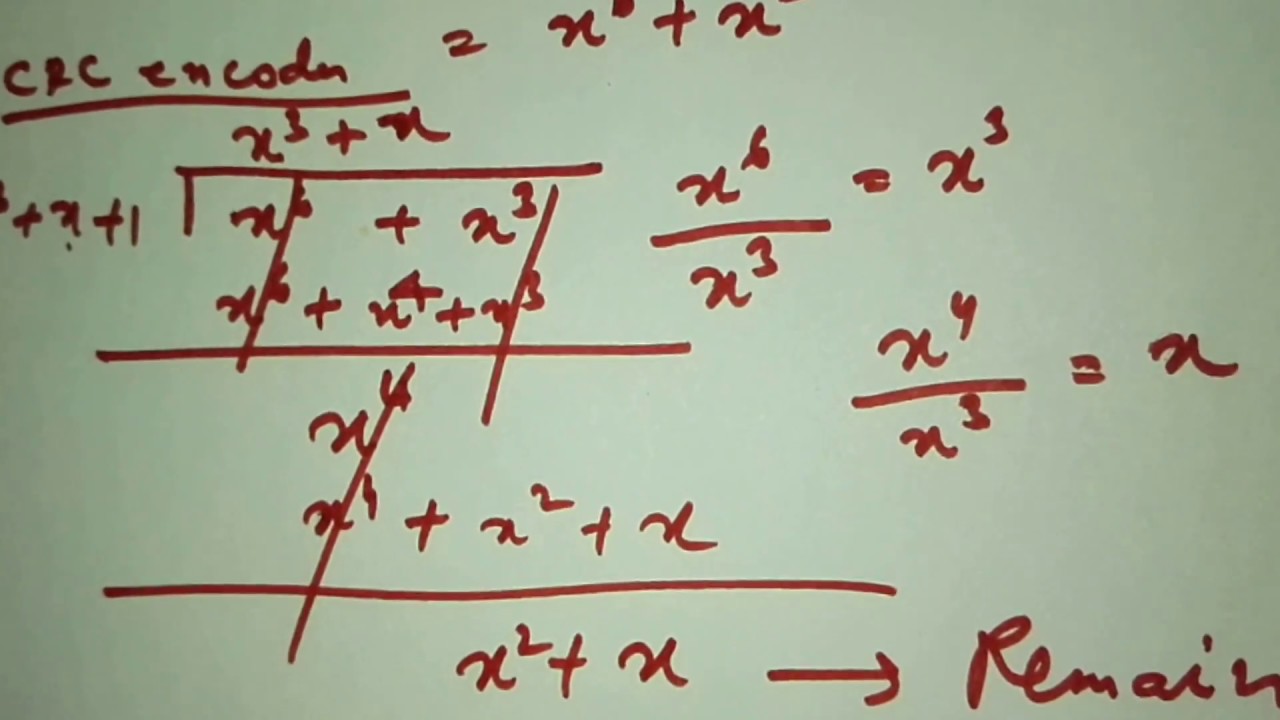 = x⁶ + x
CRC encoder
x³ + x
³ + x + 1 x⁶ + x³
x⁶ + x⁴ + x³
x⁴
x⁴ + x² + x
x² + x → Remain
x⁶ / x³ = x³
x⁴ / x³ = x